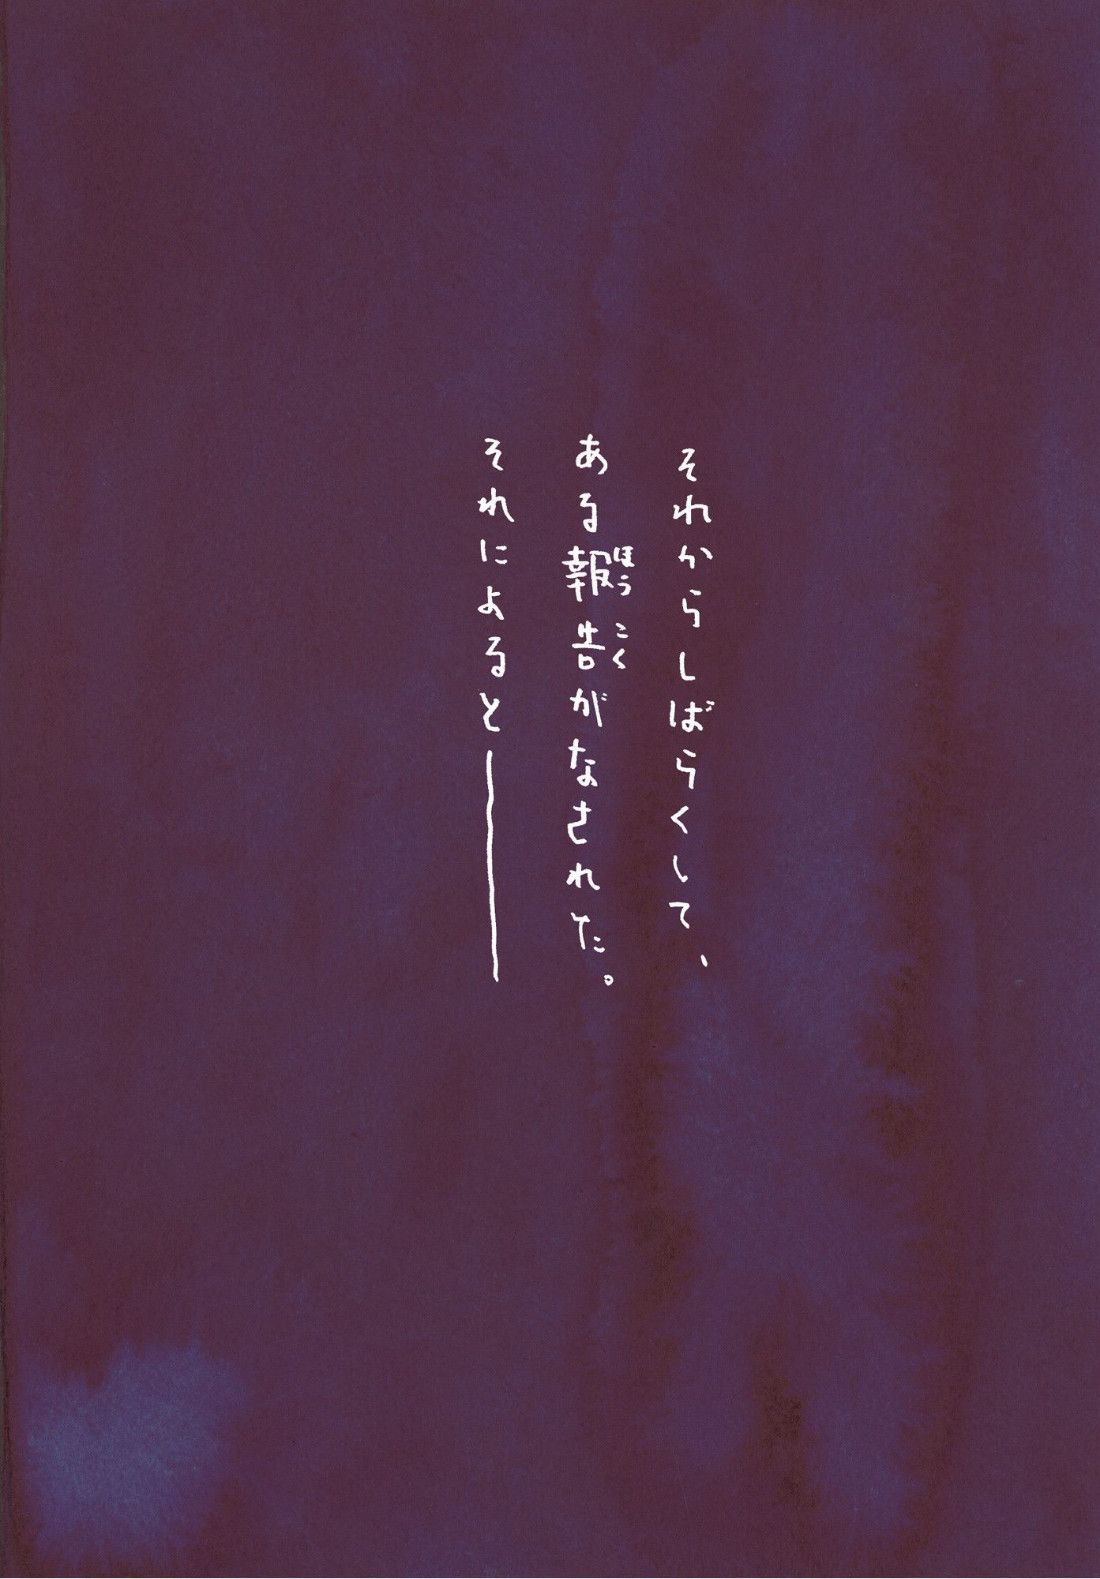 それからしばらくして、
ある報告がなされた。
ほうこく
それによると――――